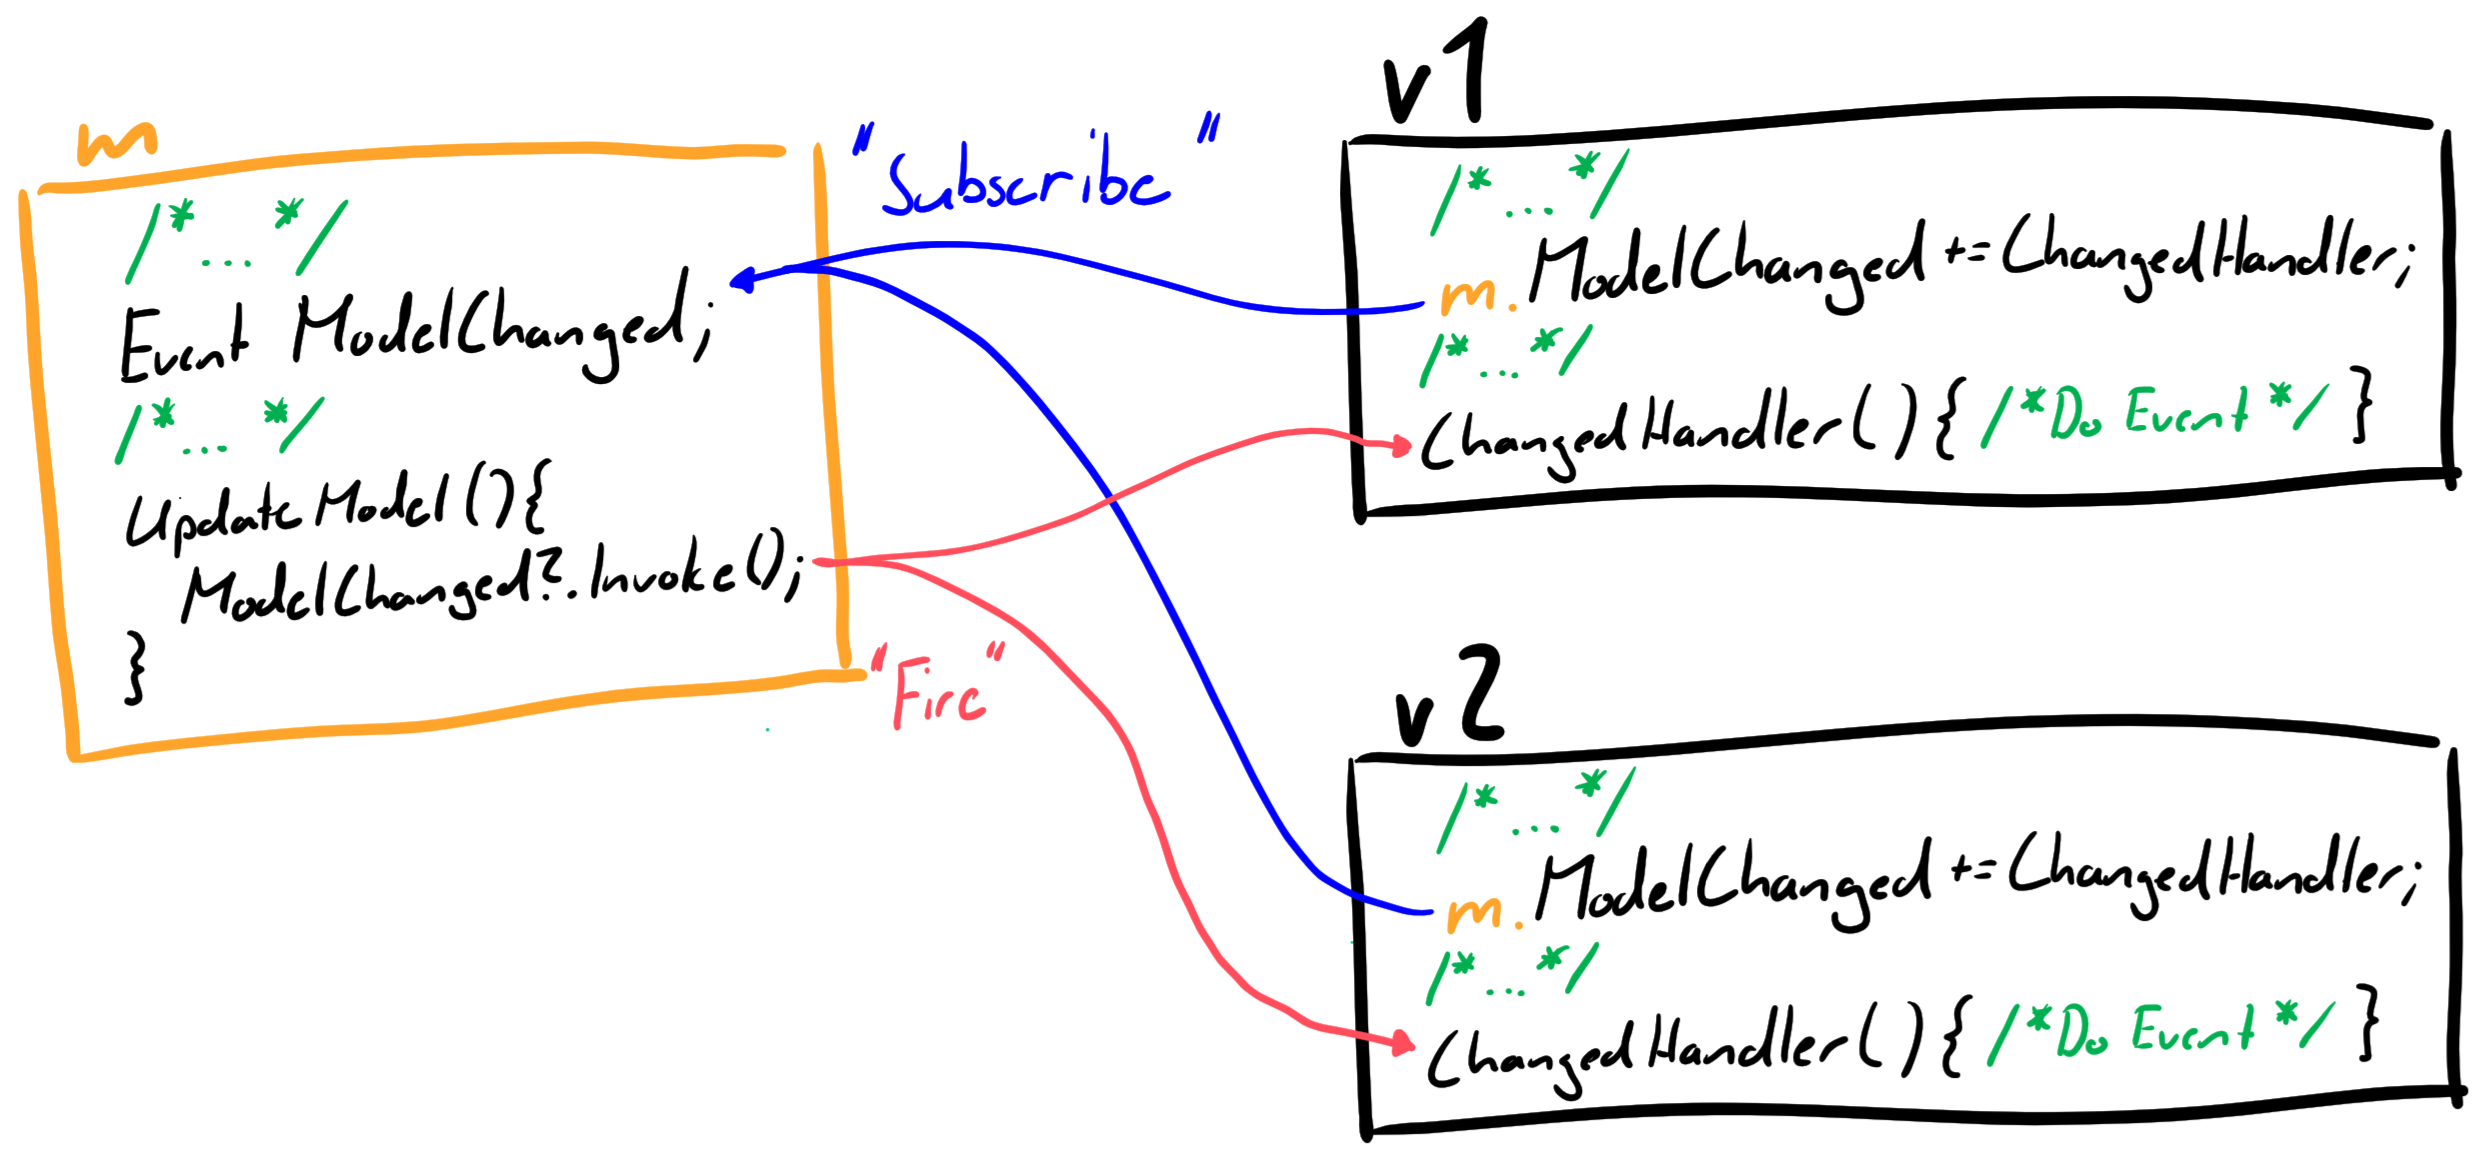 m
/* ... */
Event ModelChanged;
/* ... */
UpdateModel(){
ModelChanged?.Invoke();
}
"Subscribe"
"Fire"
v1
/* ... */
m.ModelChanged += ChangedHandler;
/* ... */
ChangedHandler(){ /*Do Event*/ }
v2
/* ... */
m.ModelChanged += ChangedHandler;
/* ... */
ChangedHandler(){ /*Do Event*/ }